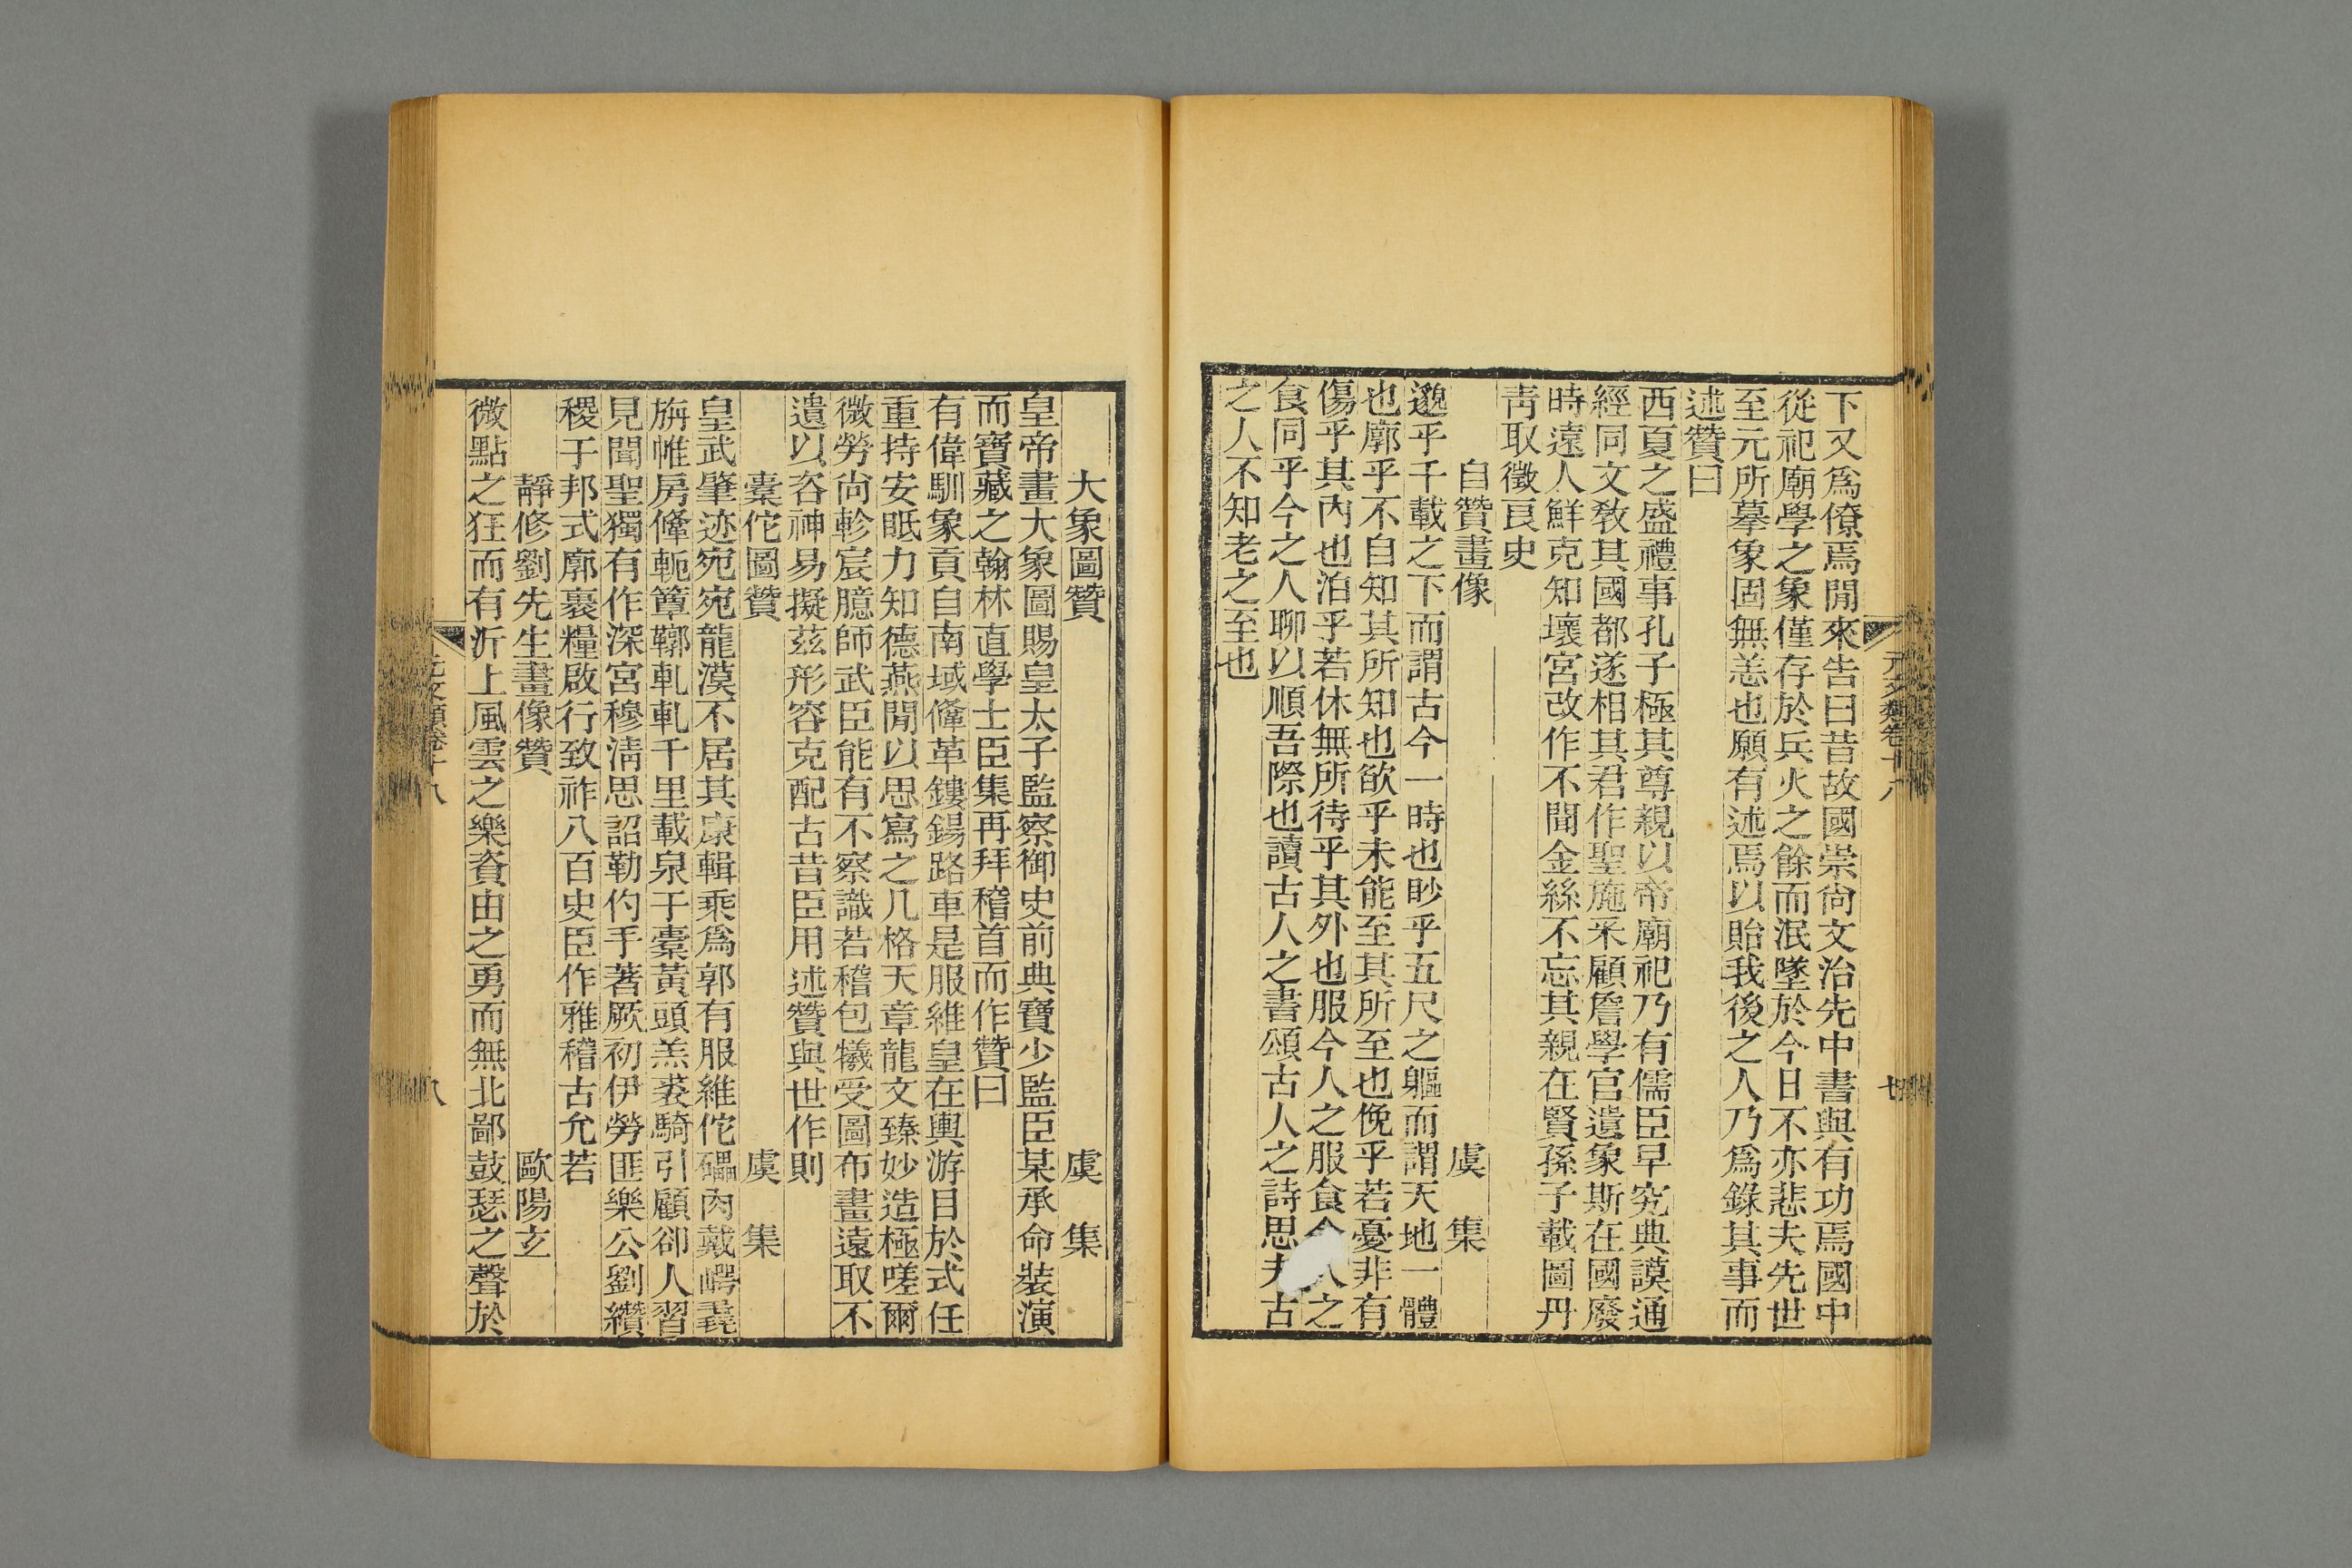 下又爲僚焉閒來告曰昔故國崇尙文治先中書與有功焉國中
從祀廟學之象僅存於兵火之餘而泯墜於今日不亦悲夫先世
至元所摹象固無恙也願有述焉以貽我後之人乃爲錄其事而
述贊曰
西夏之盛禮事孔子極其尊親以帝廟祀乃有儒臣早究典謨通
經同文敎其國都遂相其君作聖施采顧詹學官遺象斯在國廢
時遠人鮮克知壞宮改作不聞金絲不忘其親在賢孫子載圖丹
靑取徵良史
自贊畫像 虞集
邈乎千載之下而謂古今一時也眇乎五尺之軀而謂天地一體
也廓乎不自知其所知也欿乎未能至其所至也俛乎若憂非有
傷乎其內也泊乎若休無所待乎其外也服今人之服食今人之
食同乎今之人聊以順吾際也讀古人之書頌古人之詩思夫古
之人不知老之至也
大象圖贊 虞集
皇帝畫大象圖賜皇太子監察御史前典寶少監臣某承命裝演
而寶藏之翰林直學士臣集再拜稽首而作贊曰
有偉馴象貢自南域鞗革鏤鍚路車是服維皇在輿游目於式任
重持安眂力知德燕閒以思寫之几格天章龍文臻妙造極嗟爾
微勞尙軫宸臆師武臣能有不察識若稽包犧受圖布畫遠取不
遺以咨神易擬茲形容克配古昔臣用述贊與世作則
橐佗圖贊 虞集
皇武肇迹宛宛龍漠不居其康輯乘爲郭有服維佗礧肉戴崿毳
旃帷房鞗軛簟鞹軋軋千里載泉于橐黃頭羔裘騎引顧卻人習
見聞聖獨有作深宮穆淸思詔勒仢手著厥初伊勞匪樂公劉纘
稷于邦式廓裹糧啟行致祚八百史臣作雅稽古允若
靜修劉先生畫像贊 歐陽玄
微點之狂而有沂上風雲之樂資由之勇而無北鄙鼓瑟之聲於
元文類卷十八
八